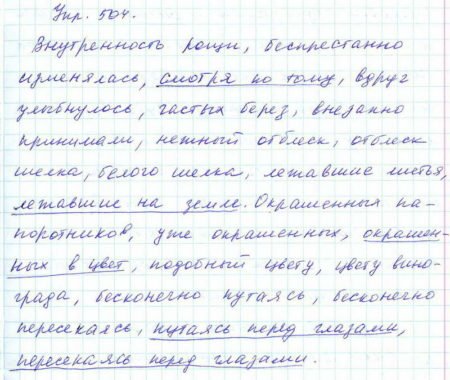 Упр. 504.
Внутренность рощи, беспрестанно
изменялась, смотря по тому, вдруг
улыбнулось, частых берез, внезапно
принимали, нежный отблеск, отблеск
шелка, белого шелка, лежавшие листья,
лежавшие на земле. Окрашенных па-
поротников, уже окрашенных, окрашен-
ных в цвет, подобный цвету, цвету вино-
града, бесконечно путаясь, бесконечно
пересекаясь, путаясь перед глазами,
пересекаясь перед глазами.